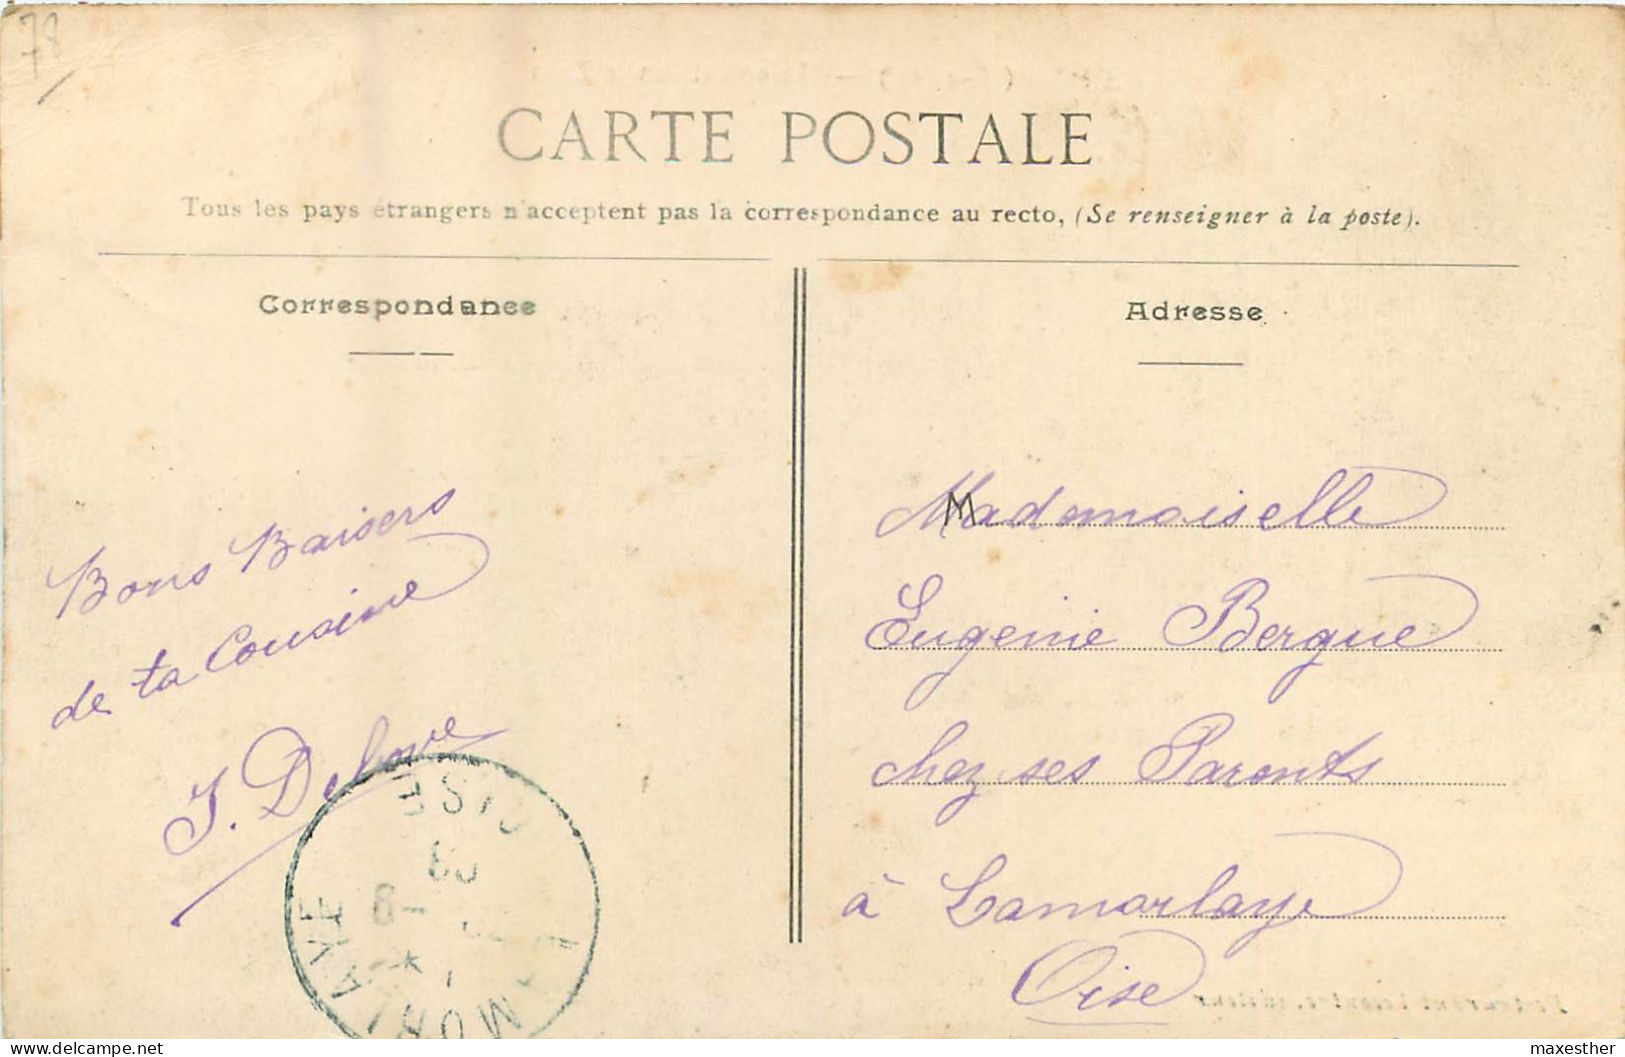 78
CARTE POSTALE
Tous les pays étrangers n'acceptent pas la correspondance au recto, (Se renseigner à la poste).
Correspondance
Adresse
Bons Baisers
de ta Cousine
Mademoiselle
Eugenie Bergue
chez ses Parents
à Lamorlaye
Oise
LAMORLAYE
OISE
delcampe.net
maxesther